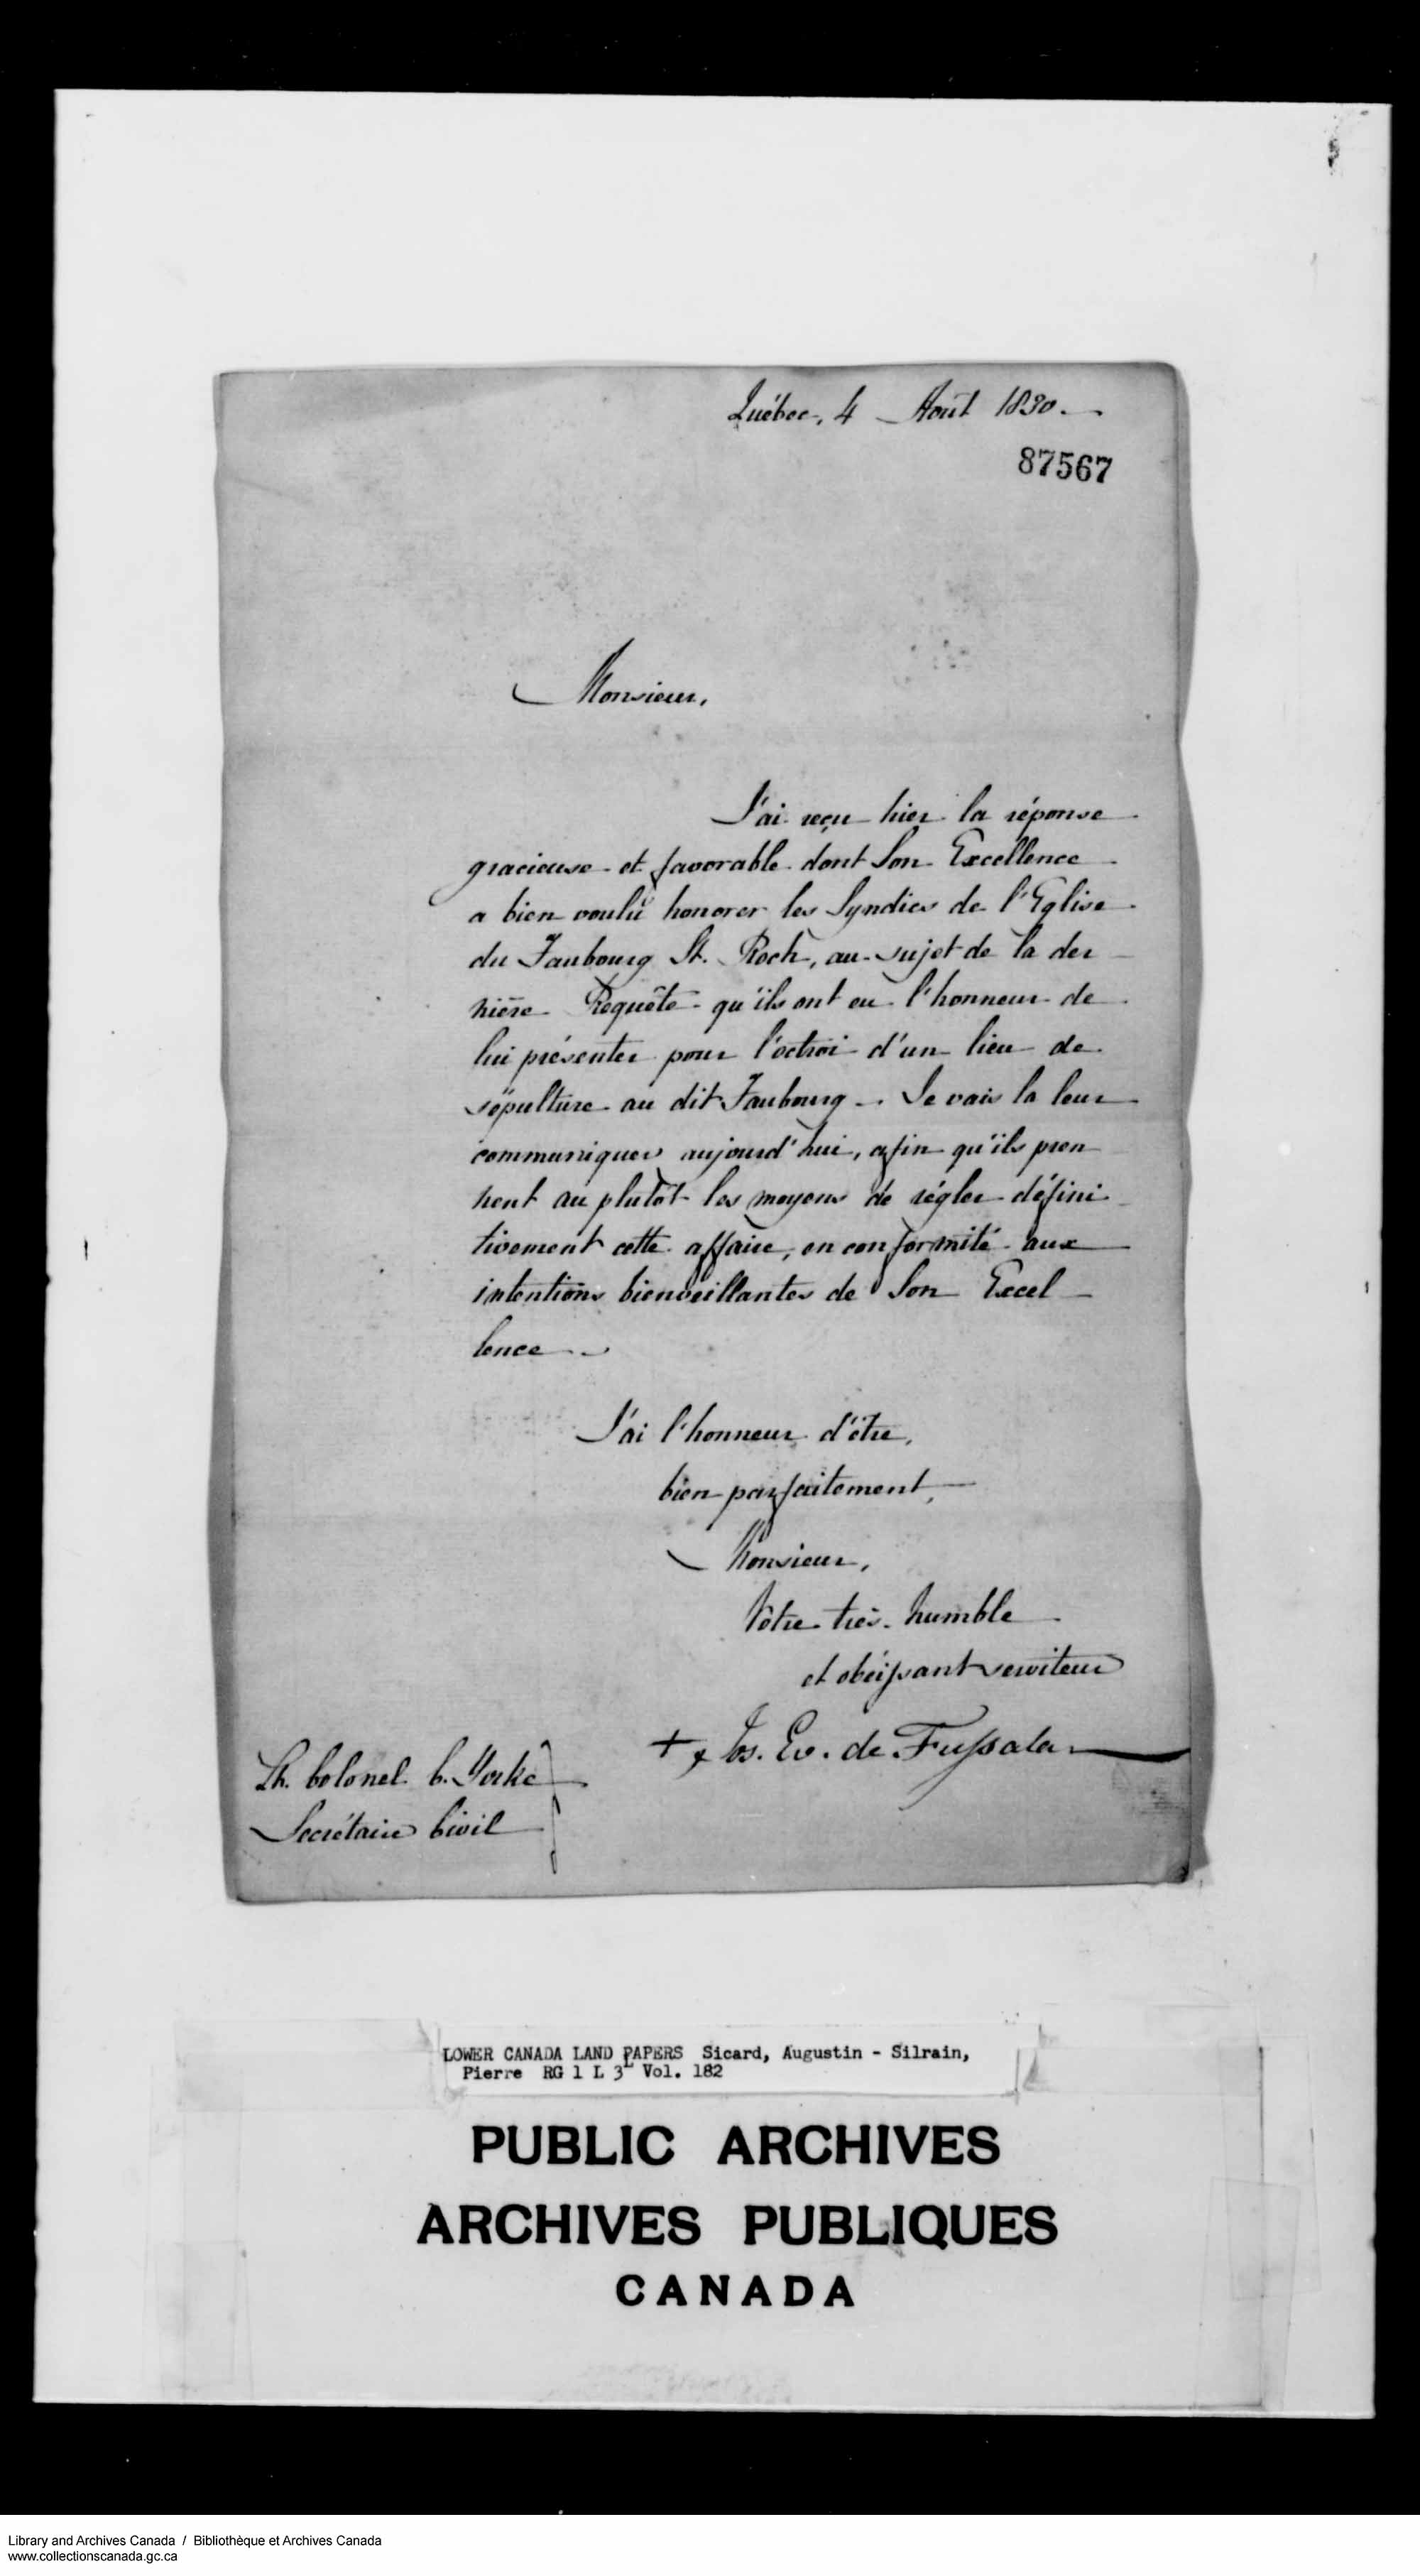 Québec, 4 Août 1830.
87567
Monsieur,
J'ai reçu hier la réponse
gracieuse et favorable dont Son Excellence
a bien voulu honorer les Syndics de l'Eglise
du Faubourg St. Roch, au sujet de la der
nière Requête qu'ils ont eu l'honneur de
lui présenter pour l'octroi d'un lieu de
sépulture au dit Faubourg. Je vais la leur
communiquer aujourd'hui, afin qu'ils pren
nent au plutôt les moyens de régler défini
tivement cette affaire, en conformité aux
intentions bienveillantes de Son Excel
lence.
J'ai l'honneur d'être,
bien parfaitement,
Monsieur,
Vôtre très humble
et obéissant serviteur
+ Jos. Ev. de Fussala
Lt. Colonel C. Yorke
Secrétaire Civil
LOWER CANADA LAND PAPERS Sicard, Augustin - Silrain,
Pierre RG 1 L 3L Vol. 182
PUBLIC ARCHIVES
ARCHIVES PUBLIQUES
CANADA
Library and Archives Canada / Bibliothèque et Archives Canada
www.collectionscanada.gc.ca